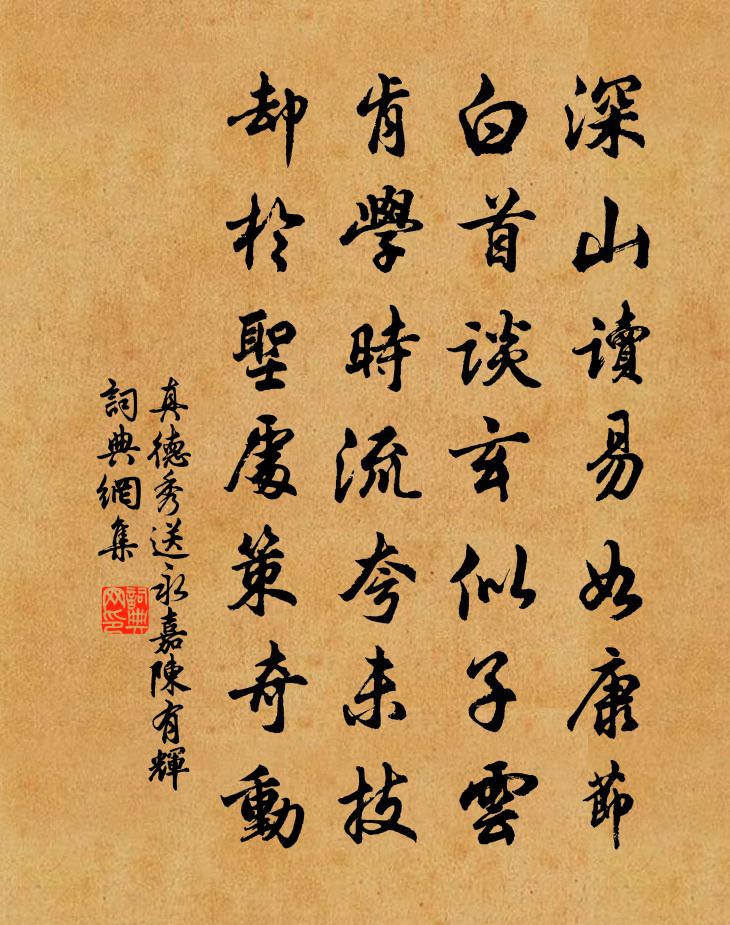 深山讀易如康節
白首談玄似子雲
肯學時流夸末技
却於聖處策奇動
真德秀送永嘉陳有輝
詞典網集
詞典网印